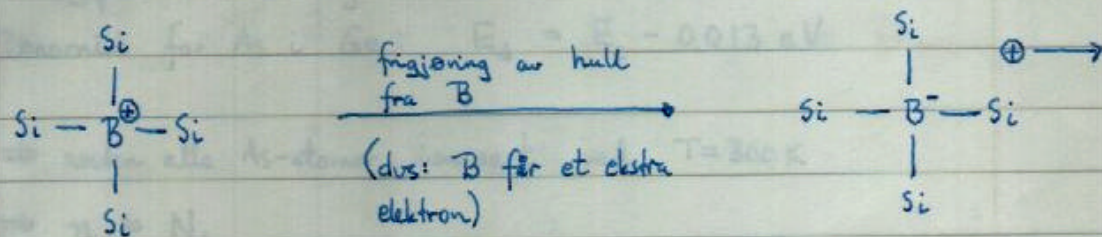 Si
Si — B⊕ — Si
Si
frigjøring av hull
fra B
(dvs: B får et ekstra
elektron)
Si
⊕ →
Si — B⁻ — Si
Si